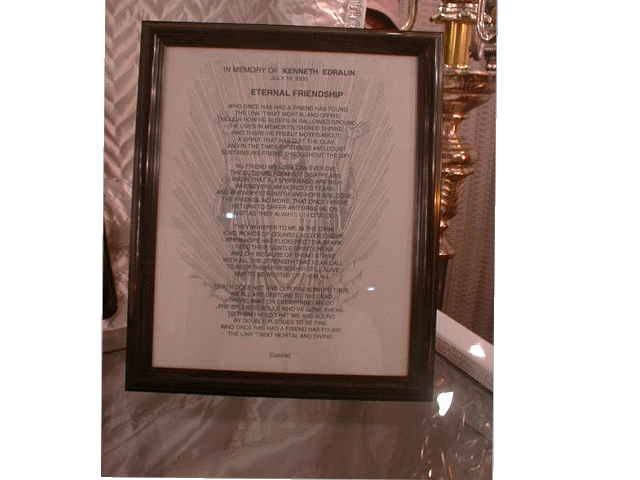 IN MEMORY OF KENNETH EDRALIN
JULY 18, 2000
ETERNAL FRIENDSHIP
WHO ONCE HAS HAD A FRIEND HAS FOUND
THE LINK 'TWIXT MORTAL AND DIVINE;
THOUGH NOW HE SLEEPS IN HALLOWED GROUND,
HE LIVES IN MEMORY'S SACRED SHRINE;
AND THERE HE FREELY MOVES ABOUT,
A SPIRIT THAT HAS QUIT THE CLAY,
AND IN THE TIMES OF STRESS AND DOUBT
SUSTAINS HIS FRIEND THROUGHOUT THE DAY.
NO FRIEND WE LOVE CAN EVER DIE;
THE OUTWARD FORM BUT DISAPPEARS;
I KNOW THAT ALL MY FRIENDS ARE NIGH
WHENEVER I AM MOVED TO TEARS.
AND WHEN MY STRENGTH AND HOPE ARE GONE,
THE FRIENDS, NO MORE, THAT ONCE I KNEW
RETURN TO CHEER AND URGE ME ON
JUST AS THEY ALWAYS USED TO DO.
THEY WHISPER TO ME IN THE DARK
KIND WORDS OF COUNSEL AND OF CHEER;
WHEN HOPE HAS FLICKERED TO A SPARK
I FEEL THEIR GENTLE SPIRITS NEAR.
AND OH! BECAUSE OF THEM I STRIVE
WITH ALL THE STRENGTH THAT I CAN CALL
TO KEEP THEIR FRIENDSHIP STILL ALIVE
AND TO BE WORTHY OF THEM ALL.
DEATH DOES NOT END OUR FRIENDSHIPS TRUE;
WE ALL ARE DEBTORS TO THE DEAD;
THERE, WAIT ON EVERYTHING WE DO
THE SPLENDID SOULS WHO'VE GONE AHEAD.
TO THEM I HOLD THAT WE ARE BOUND
BY DOUBLE PLEDGES TO BE FINE.
WHO ONCE HAS HAD A FRIEND HAS FOUND
THE LINK 'TWIXT MORTAL AND DIVINE.